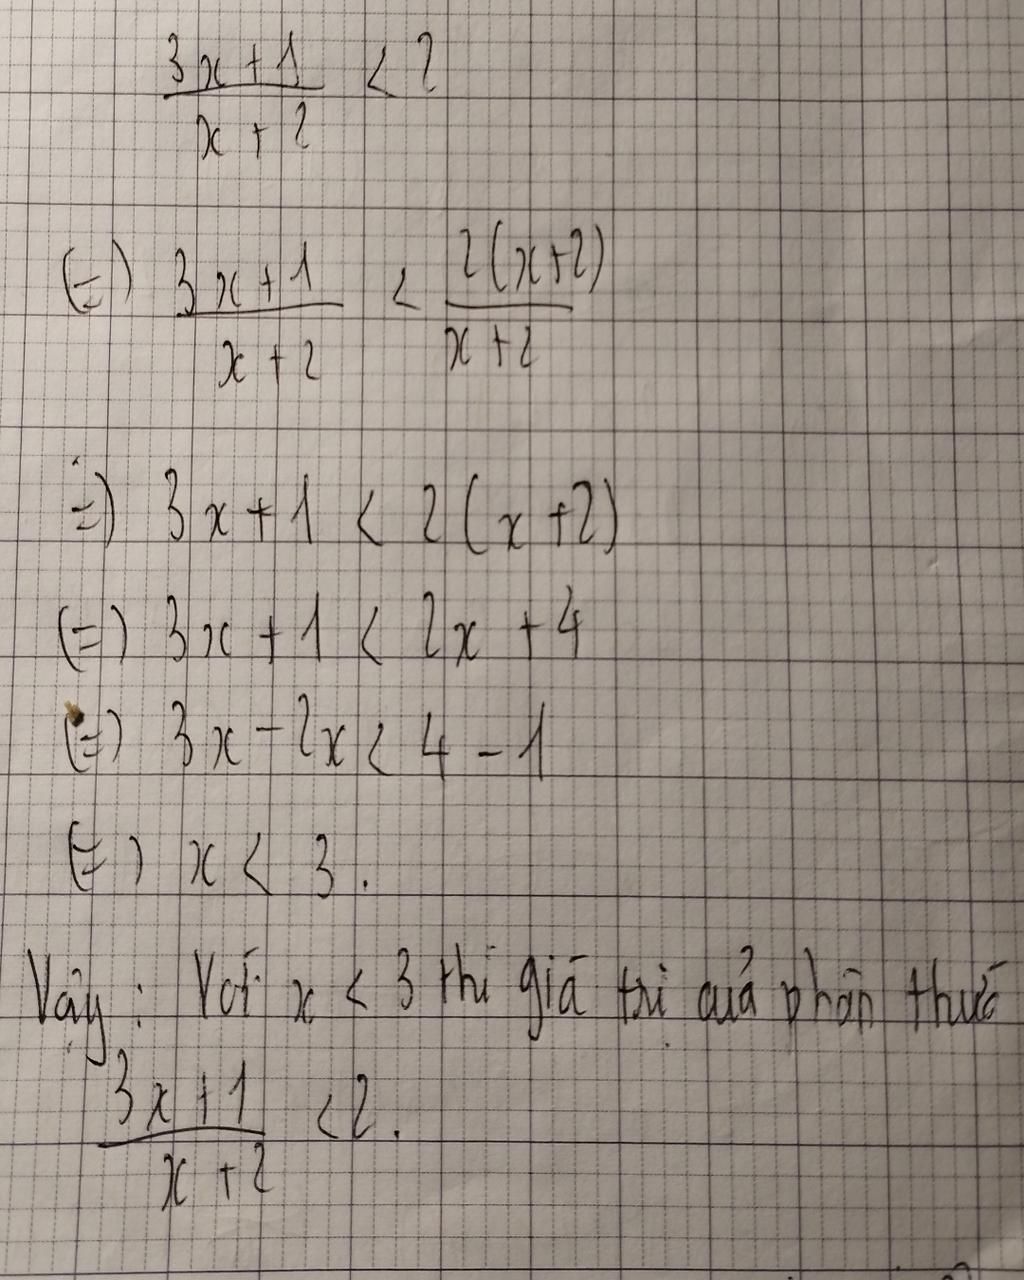 3x+1 / x+2 < 2
(=) 3x+1 / x+2 < 2(x+2) / x+2
=) 3x+1 < 2(x+2)
(=) 3x+1 < 2x+4
(=) 3x-2x < 4-1
(=) x < 3.
Vậy: Với x < 3 thì giá trị quả phân thức
3x+1 / x+2 < 2.